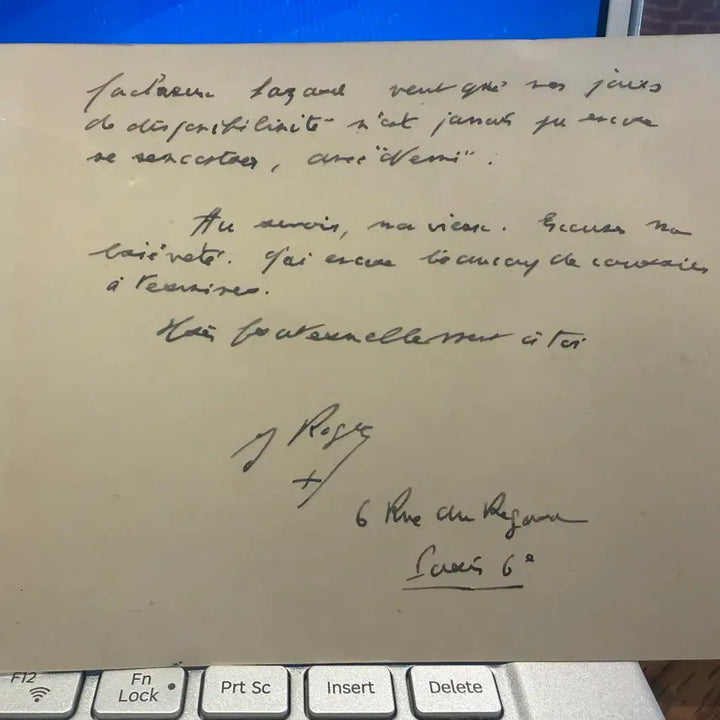 hasard veut que nos jours
de disponibilité n'ont jamais pu encore
se rencontrer, avec "Remi".
Au revoir, mon vieux. Excuse ma
brièveté. J'ai encore beaucoup de courrier
à terminer.
Très fraternellement à toi
J Roger
+
6 Rue du Regard
Paris 6e
F12
Fn
Lock
Prt Sc
Insert
Delete